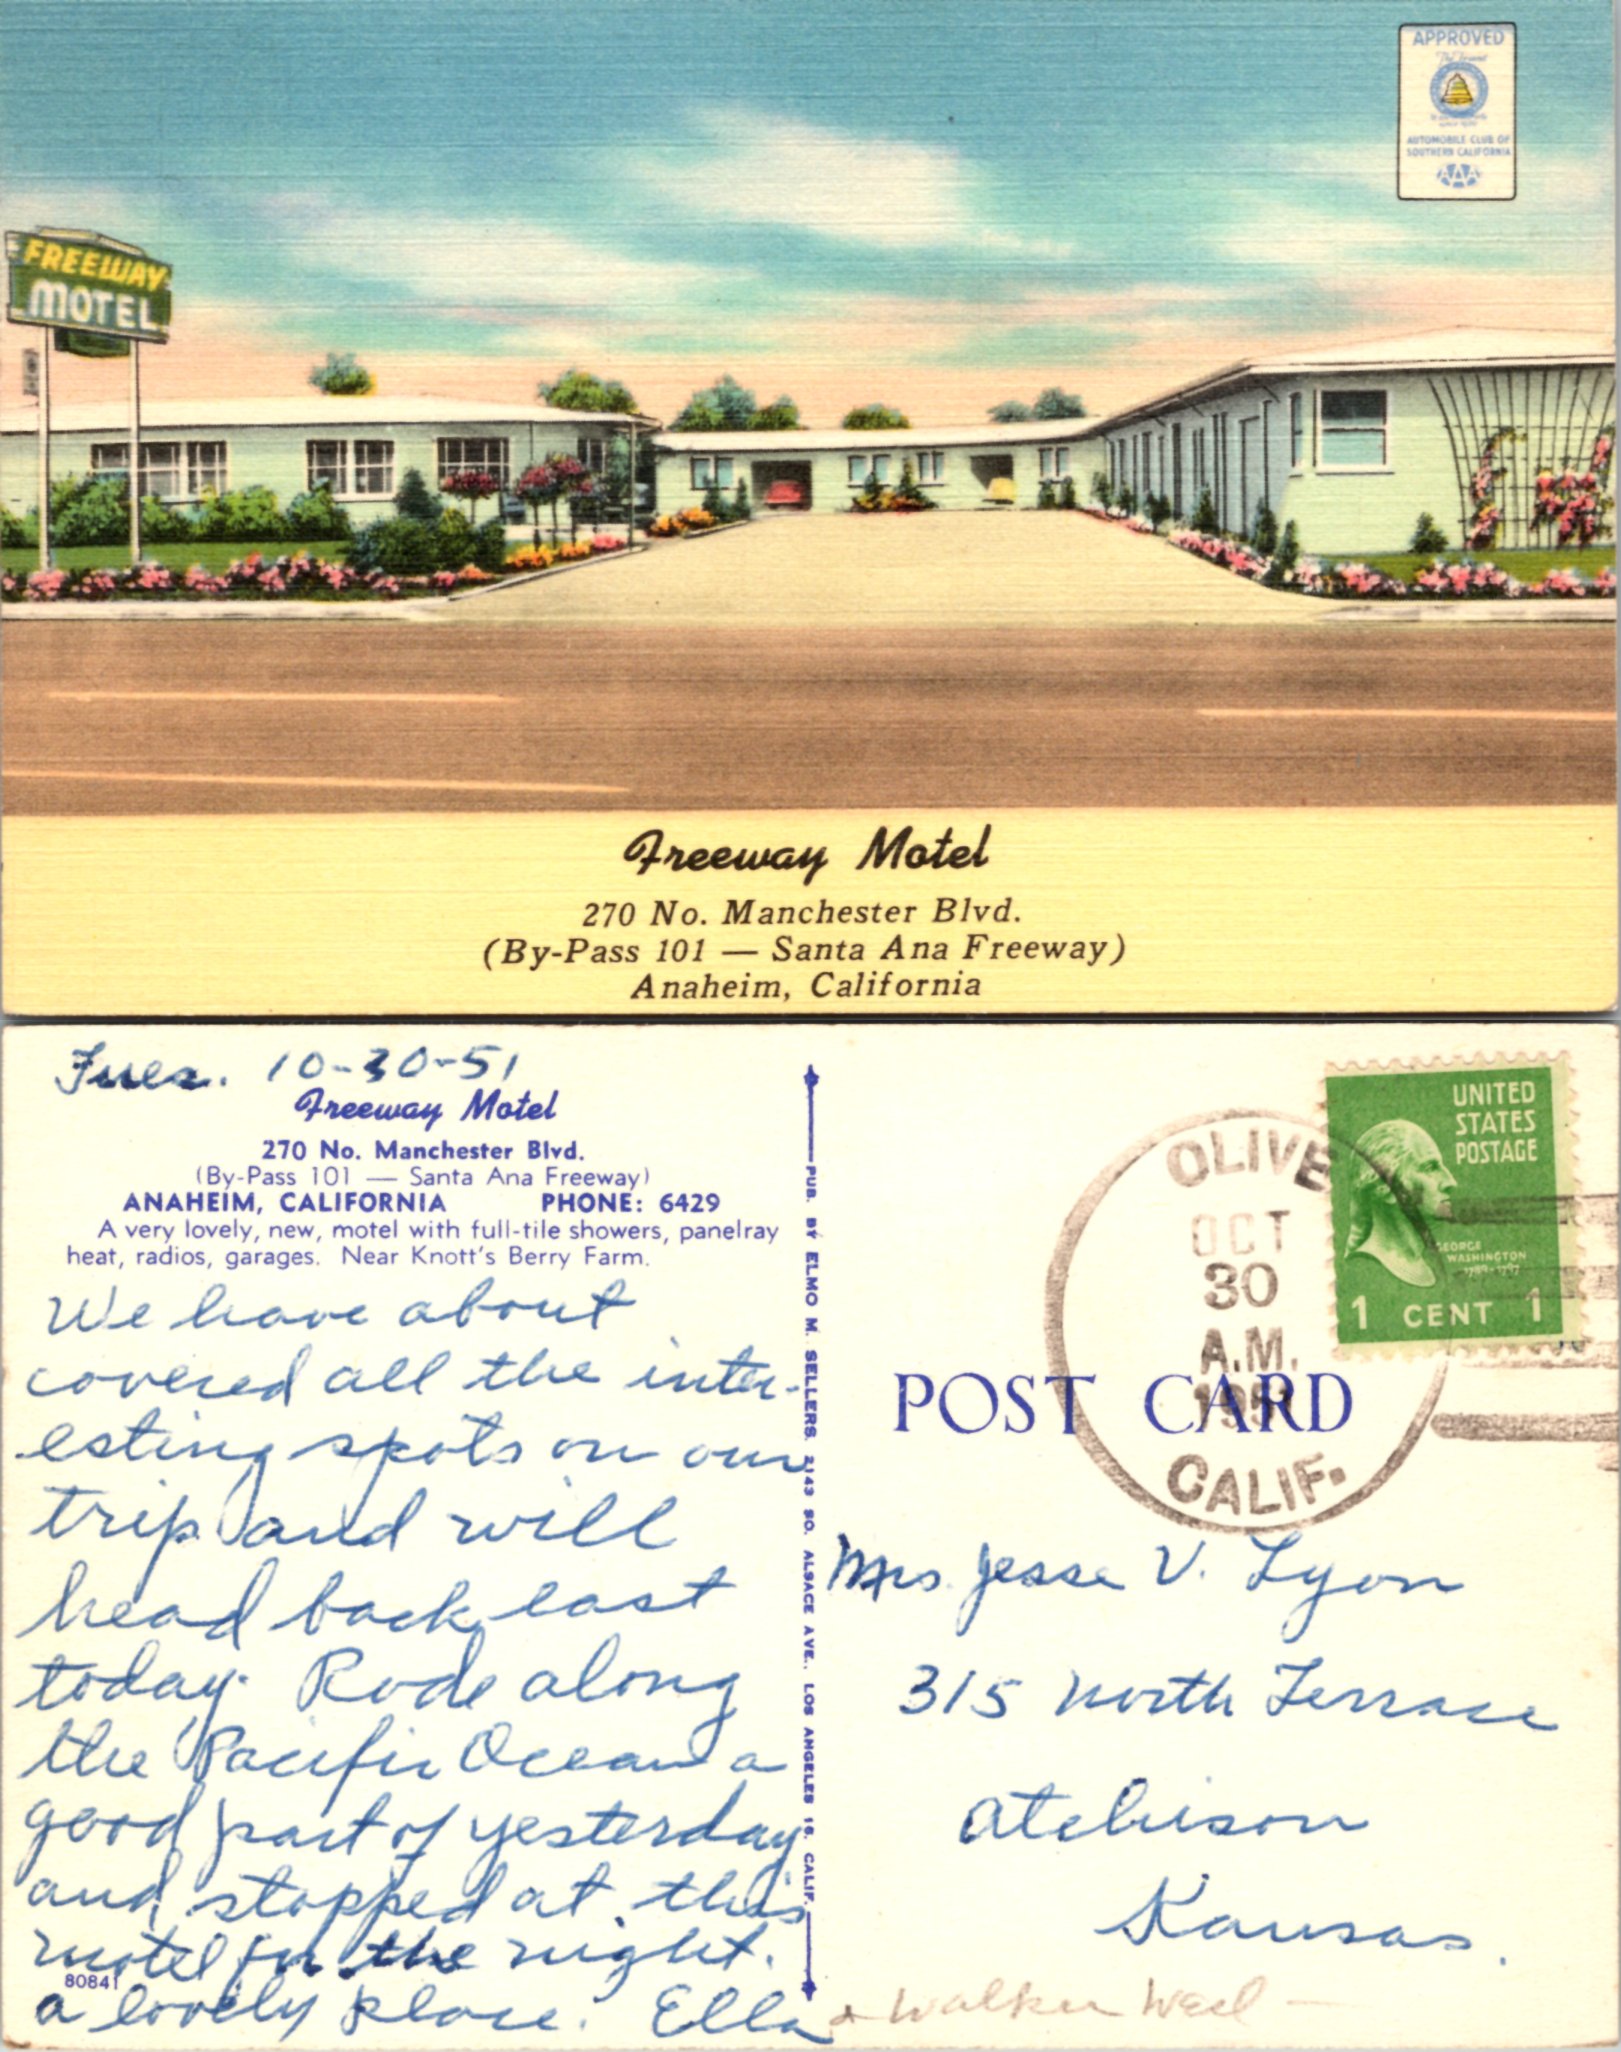 APPROVED
AUTOMOBILE CLUB OF
SOUTHERN CALIFORNIA
AAA
FREEWAY
MOTEL
Freeway Motel
270 No. Manchester Blvd.
(By-Pass 101 — Santa Ana Freeway)
Anaheim, California
Tues. 10-30-51
Freeway Motel
270 No. Manchester Blvd.
(By-Pass 101 — Santa Ana Freeway)
ANAHEIM, CALIFORNIA PHONE: 6429
A very lovely, new, motel with full-tile showers, panelray
heat, radios, garages. Near Knott's Berry Farm.
We have about
covered all the inter-
esting spots on our
trip and will
head back east
today. Rode along
the Pacific Ocean a
good part of yesterday
and stopped at this
motel for the night.
80841
a lovely place. Ella
& Walker
PUB. BY ELMO M. SELLERS, 2143 SO. ALSACE AVE., LOS ANGELES 16, CALIF.
OLIVE
OCT
30
A.M.
1951
CALIF.
UNITED
STATES
POSTAGE
GEORGE
WASHINGTON
1789-1797
1 CENT 1
POST CARD
Mrs Jesse V. Lyon
315 North Terrace
Atchison
Kansas.